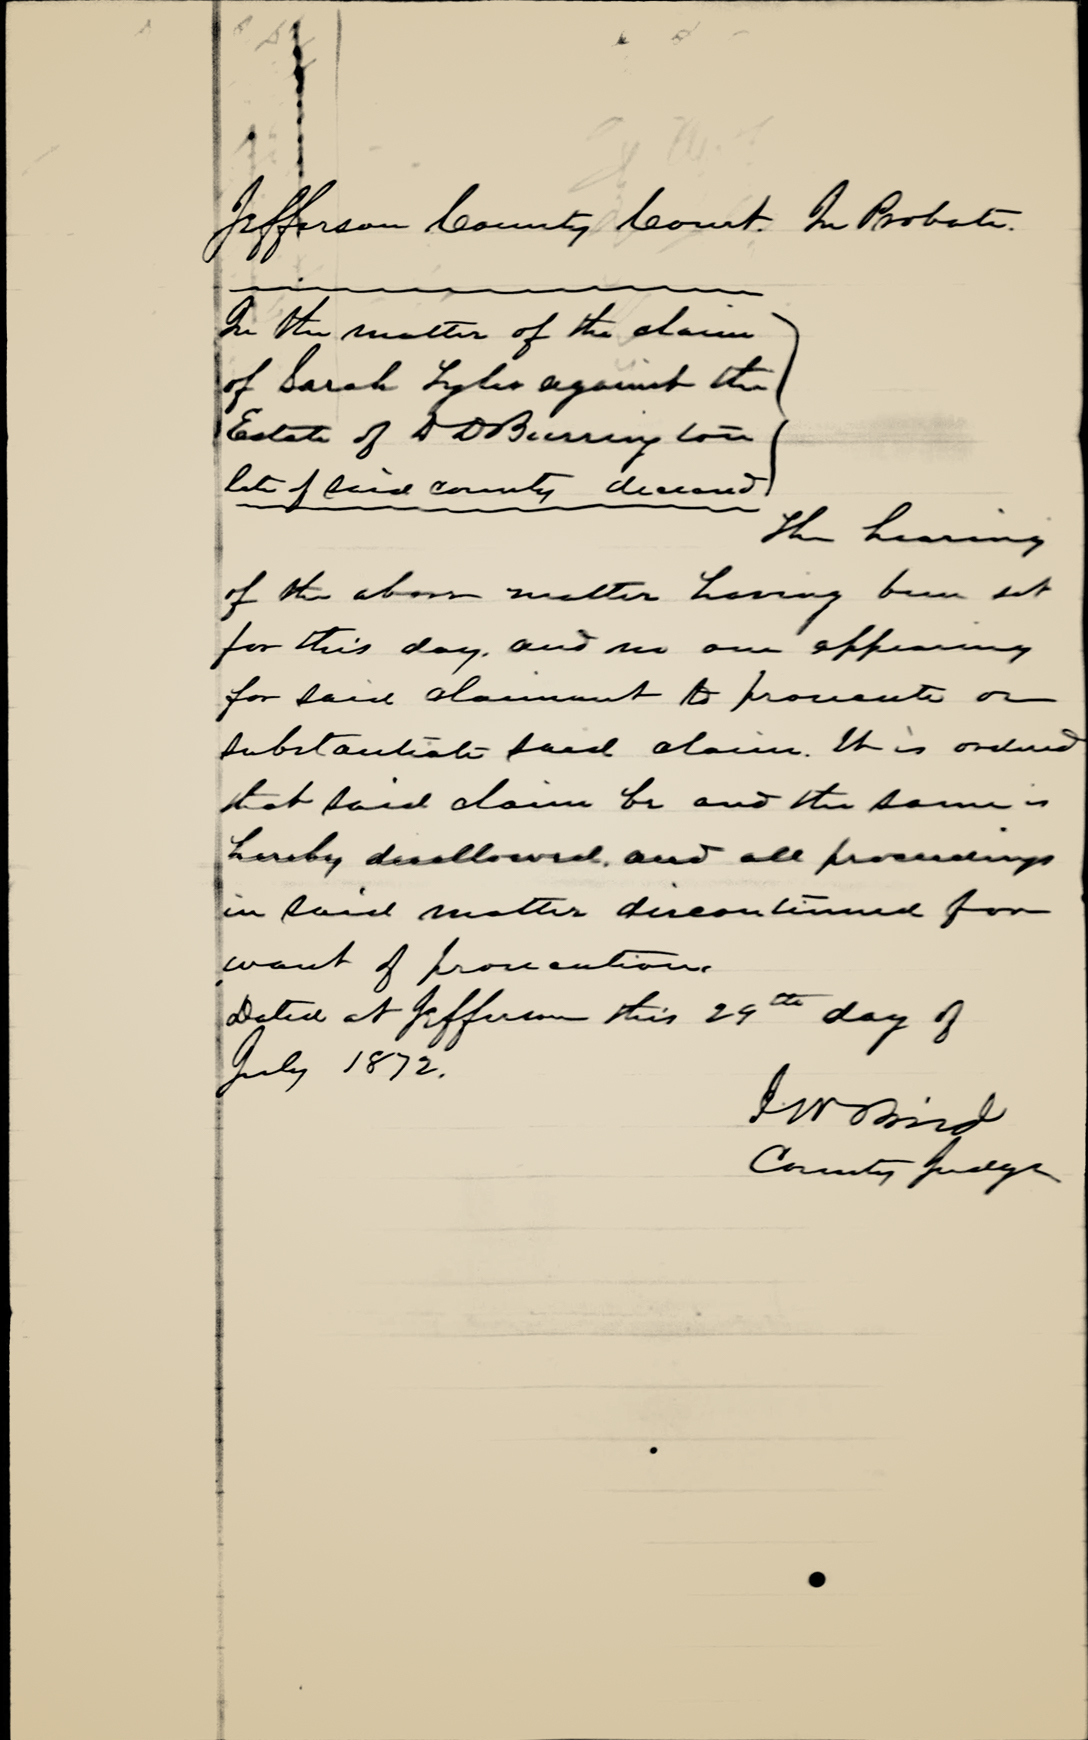 Jefferson County Court. In Probate.
In the matter of the claim
of Sarah against the
Estate of D D Burrington
late of said county deceased
The hearing
of the above matter having been set
for this day, and no one appearing
for said claimant to prosecute or
substantiate said claim. It is ordered
that said claim be and the same is
hereby disallowed, and all proceedings
in said matter discontinued for
want of prosecution.
Dated at Jefferson this 29th day of
July 1872.
I W Bird
County Judge